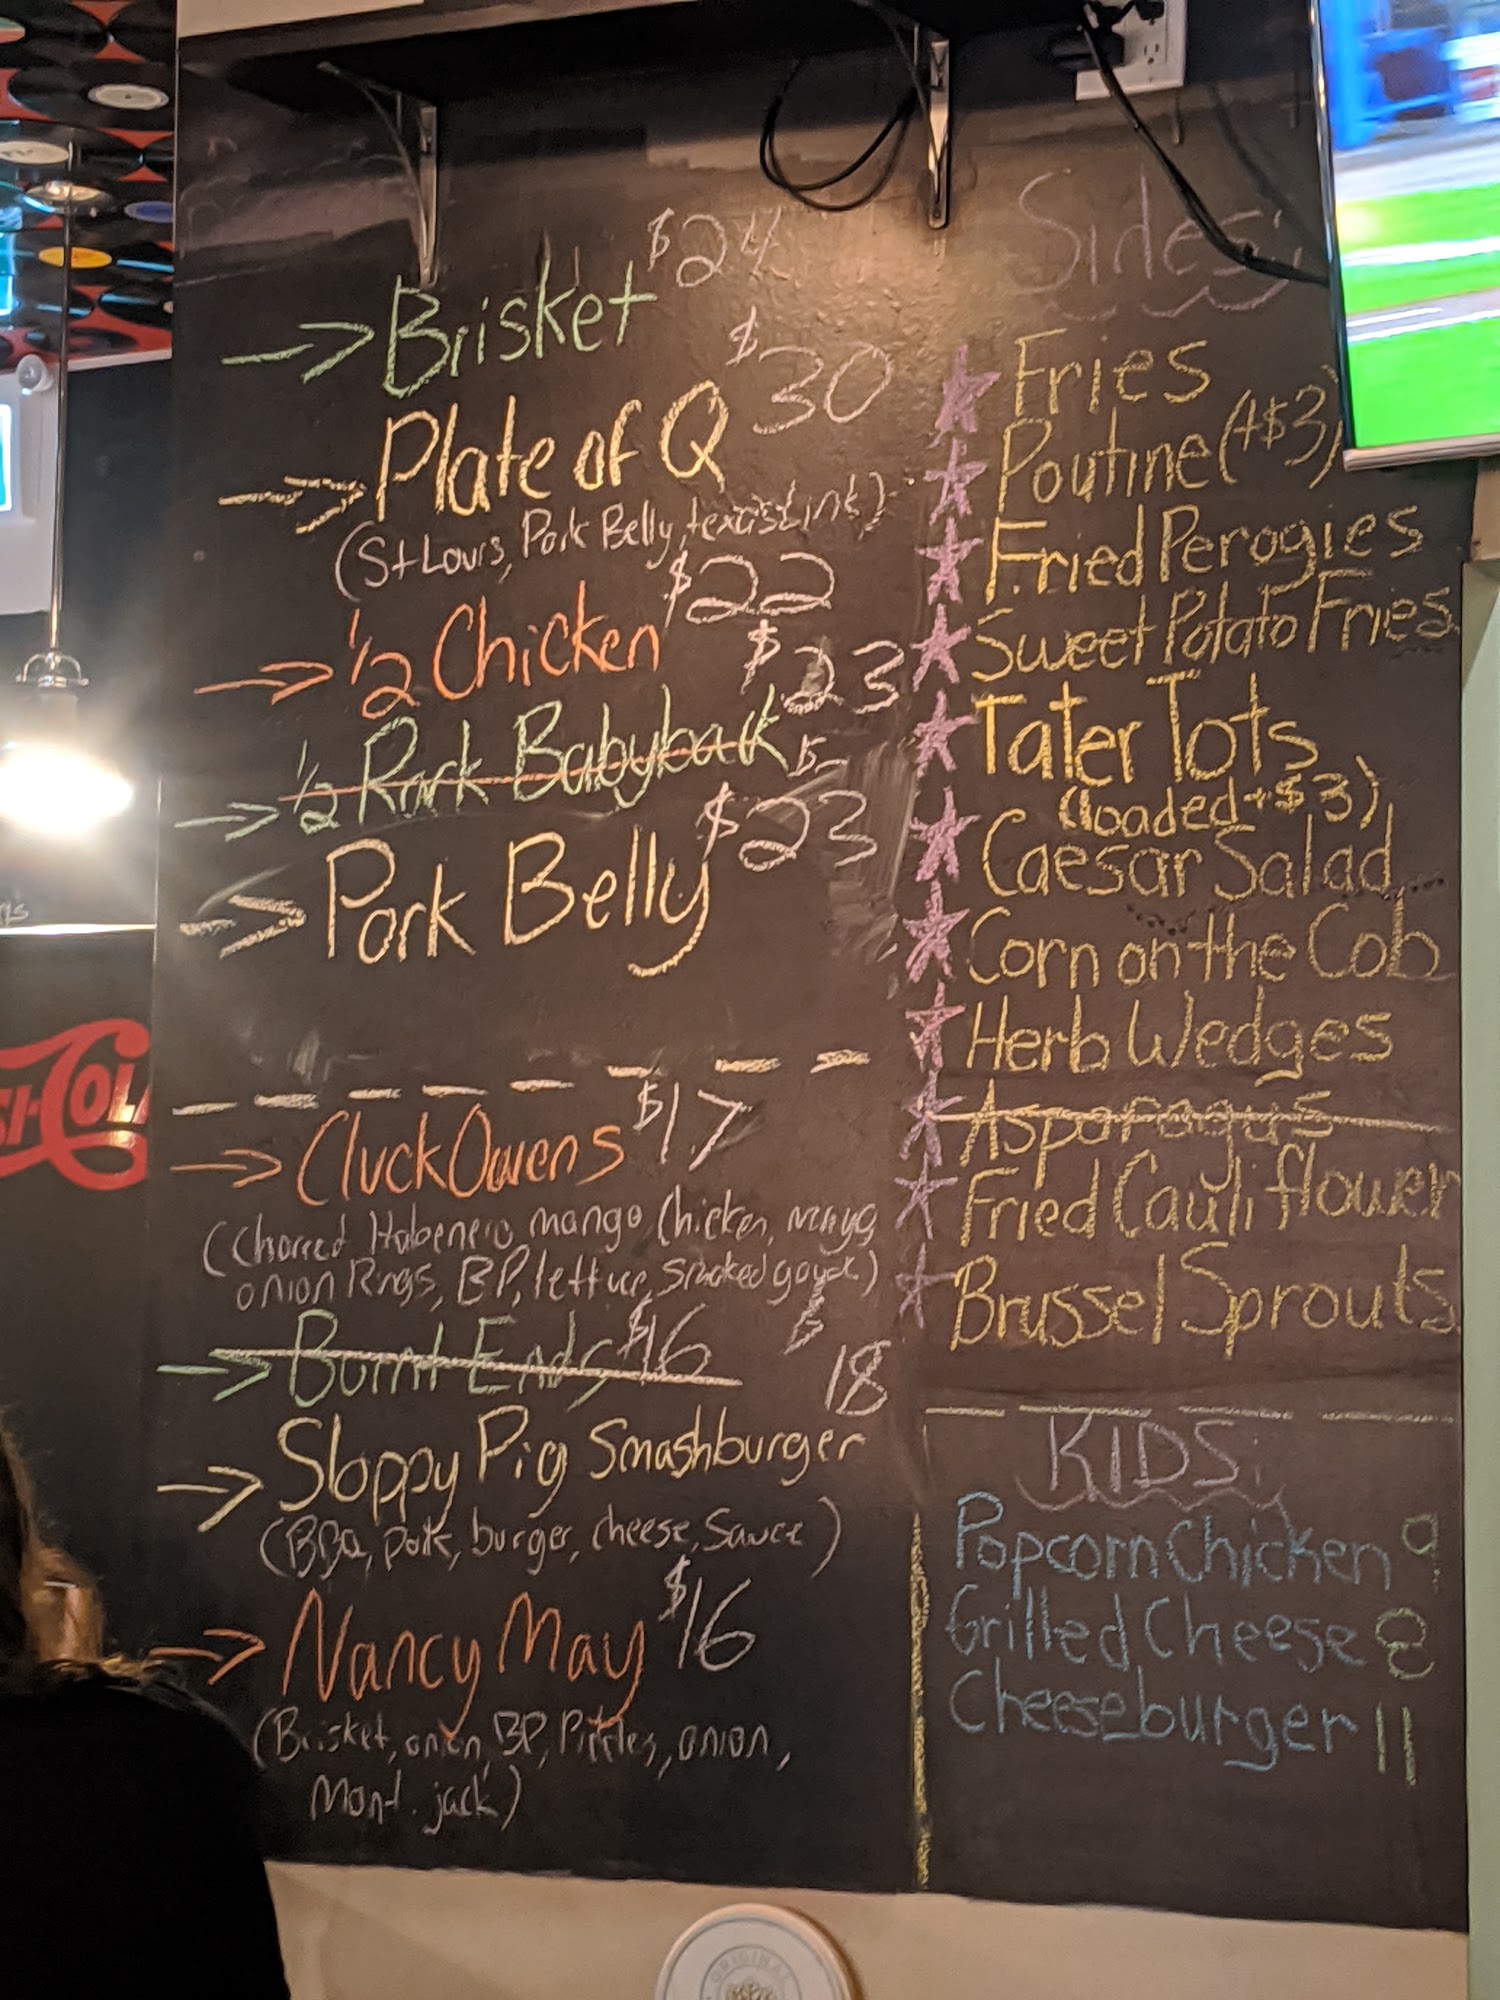 $24
Brisket
$30
Plate of Q
(St Louis, Pork Belly, texas Link)
$22
1/2 Chicken
$23
1/2 Rack Babyback
$23
Pork Belly
$17
Cluck Owens
(Charred Habenero mango Chicken, mayo,
onion Rings, BP, lettuce, smoked gouda)
Burnt Ends $16
18
Sloppy Pig Smashburger
(BBQ, pork, burger, cheese, sauce)
Nancy May $16
(Brisket, onion, BP, Pickles, onion,
Mont. jack)
Sides:
Fries
Poutine (+$3)
Fried Perogies
Sweet Potato Fries
Tater Tots
(loaded +$3)
Caesar Salad
Corn on the Cob
Herb Wedges
Asparagus
Fried Cauliflower
Brussel Sprouts
KIDS:
Popcorn Chicken 9
Grilled Cheese 8
Cheeseburger 11
SI-COLA
ORIGINAL